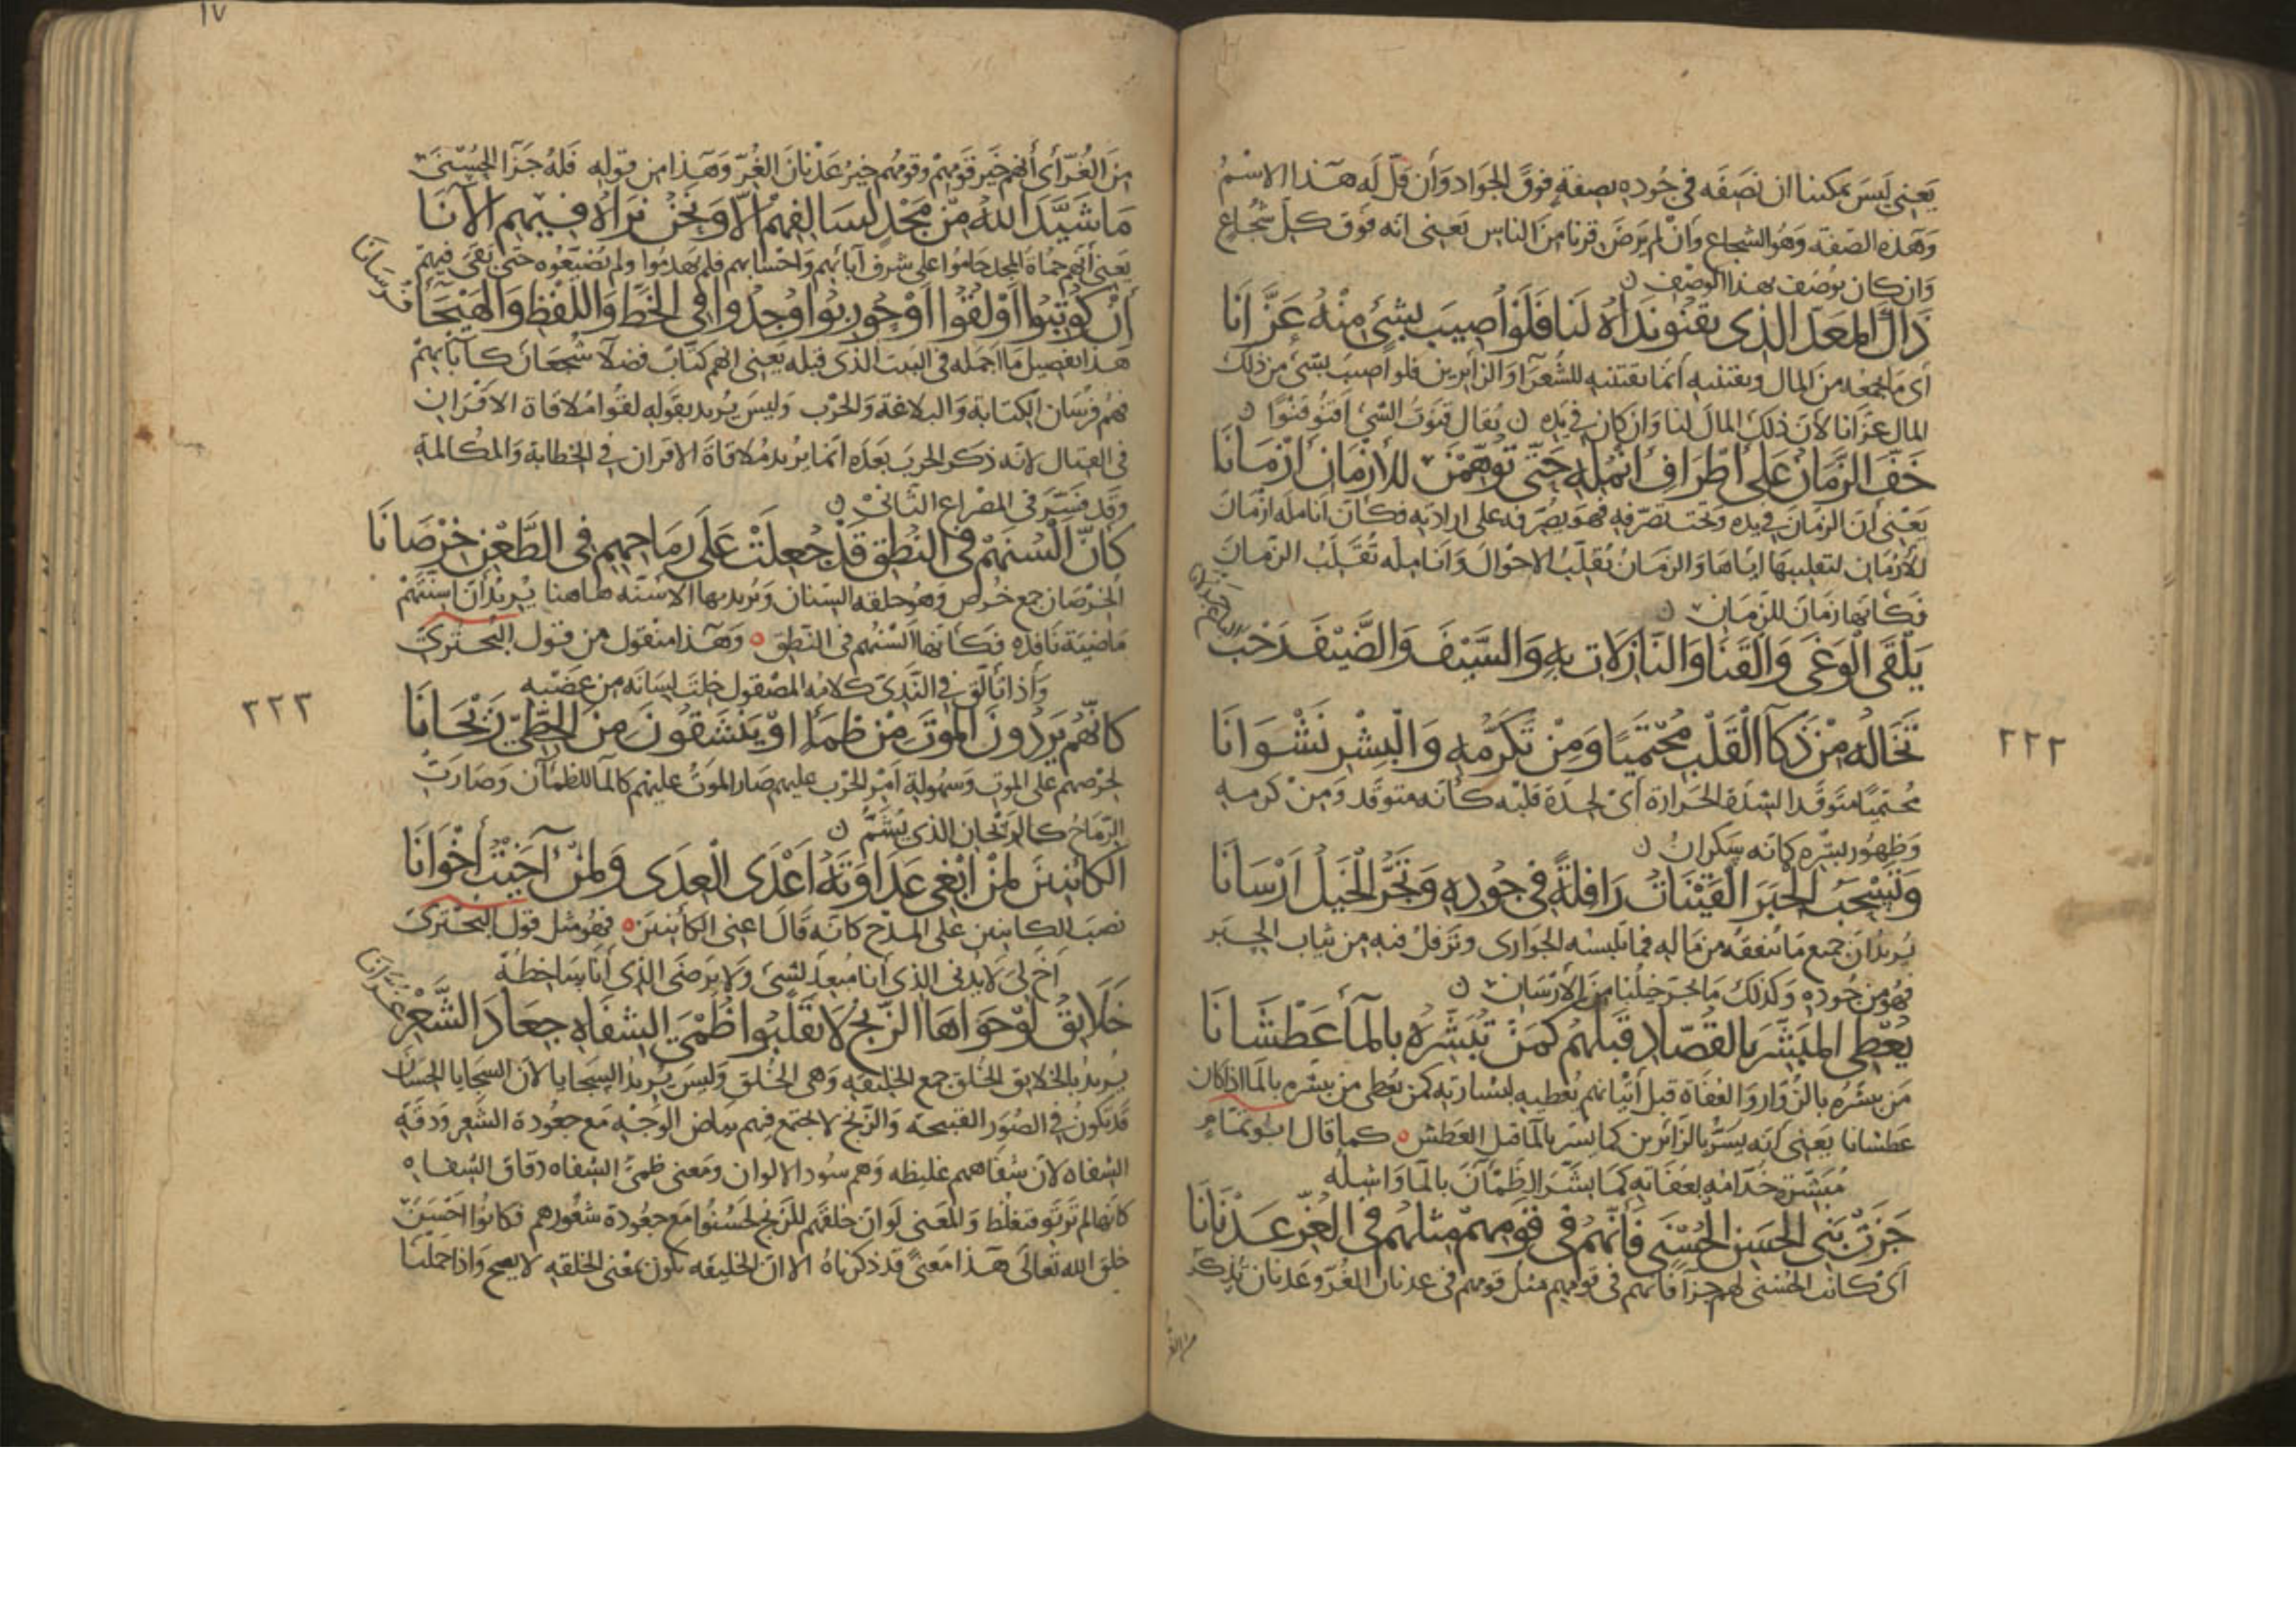 يَعني لَيسَ يمكننا ان نصَفَه في جُوده بصفةٍ فوقَ الجَواد وَأن قَلَّ لَه هَذا الاسْمُ
وَهَذه الصّفة وَهُو الشجاع وَأنْ لم يَرضَ قرنا مِنَ الناس يَعني انّه فَوقَ كلّ شُجاعٍ
وَان كان يُوصَف بهذا الوصْف ن
ذاكَ المُعَدّ الذي يَقْنُو نَداهُ لَنا فَلَوْ اُصِيبَ بشئٍ مِنْهُ عَزَّانَا
أي مَا يجمعُه مِنَ المال ويقتنيه أنمّا يقتنيه للشُّعَرآ وَالزائرين فلو أصيبَ بشئ من ذلك
المال عَزّانا لأنّ ذلكَ المالَ لنا وَان كان في يَده ن يُقال قنَوتُ الشئ اقنُو قَنْوًا ن
خَفَّ الزَّمانُ عَلى اطْرَافِ انْمُلِهِ حَتّى تُوُهِّمْنَ للأَزْمَانِ أزْمَانَا
يَعْني أنّ الزمَانَ في يده وَتحت تصَرّفهِ فهوَ يصَرّفه على ارادَته فكأنّ أنامله ازمَانَ
للأزمَانِ لتقليبهَا ايّاهَا وَالزمَانُ يُقلّبُ الاحْوالَ وَأنامِله تُقَلّبُ الزّمانَ
فكأنّها زمَان للزّمَانِ ن
يَلْقَى الْوَغَى وَالقَنَا وَالنّازلاتِ بِهِ وَالسَّيْفَ وَالضَّيْفَ رَحْبَ
البَاعِ جَذْلانَا
تَخَالُه مِنْ ذَكآ الْقَلْبِ مُحْتَمِيًا وَمِنْ تَكَرُّمِهِ وَالبِشْرِ نَشْوَانَا
مُحتميًا متوقّدا لشدّة الحَرارة أيْ لحِدّة قلبه كأنّه متوقّد وَمِن كرمه
وَظهُور بشره كأنّه سَكران ن
وَتَسْحَبُ الحِبَرَ القَيْنَاتُ رَافِلةً في جُوده وَتَجُرّ الخَيلُ ارْسَانَا
يُريدُ أنّ جميع مَا ننفقه من مَاله فما تلبسه الجوارى وترفلُ فيه من ثياب الحِبَر
فهُو من جُوده وَكذلك مَا تجرّ خيلُنا منَ الأرْسَان ن
يُعْطِي المُبَشِّرَ بالقُصّادِ قَبْلَهُم كمَنْ يُبَشِّرُهُ بالمآءِ عَطْشَانَا
مَن بشّرهُ بالزّوار وَالعُفاة قبل أتيَانهم يُعطيه لبشارته كمن يُعطى من بشّره بالمآ اذا كان
عَطشانا يَعنى أنّه يسَرّ بالزائرين كما يُسَرّ بالمآ قبل العَطش ه كما قال ابُو تمّام
مُبَشّرة خُدّامُه بعُفَاته كمَا بَشّرَ الظَّمْآنَ بالمآ وَاشِلُه
جَزَتْ بَني الحَسَنِ الحُسْنَى فَأنّهُمُ في قَوْمِهِمْ مِثْلُهُمْ في الغُرِّ عَدْنَانَا
أي كانت الحُسنى لهم جزآ فأنهم في قومهم مثل قومهم في عدنان الغُرّ وعَدنان يُذكر
من الغر
٢٢٢
١٧
مِنَ الغُرّ أي أنهم خَير قَومهمْ وَقومُهُم خيرُ عَدْنانَ الغُرّ وَهَذا من قوله فَلهُ جَزآ الحُسْنَى
مَا شَيَّدَ اللهُ مِنْ مَجْدٍ لسَالِفِهِمْ الاّ وَنَحْنُ نَرَاهُ فيهِمِ الآنَا
يَعني أنّهم حُماة المجد حَاموا على شرف آبائهم وَاحْسَابهم فلم يَهدمُوا ولم يُضيّعُوه حتى بَقىَ فيهم
أنْ كُوتِبُوا أوْ لُقُوا أوْ حُورِبُوا وُجِدُوا في الخَطِّ وَاللّفْظِ وَالهَيْجَآ
فُرْسَانَا
هَذا تفصيل مَا اجمَله في البَيت الذي قبله يَعني انهم كتّابٌ فضلآ شُجعَانٌ كآبآئهمْ
فهُم فُرْسَان الكتَابة وَالبلاغة وَالحرب وَليسَ يُريد بقوله لقُوا مُلاقاة الاقْرَان
في القتال لانّه ذكر الحربَ بَعده انمَا يُريد مُلاقاةَ الاقران في الخطابة وَالمكالمة
وَقَد فسّرَ في المصْراع الثّاني ن
كأنّ ألْسُنَهُمْ في النُّطْقِ قَدْ جُعِلَتْ عَلَى رِمَاحِهِم في الطّعْنِ خُرْصَانَا
الخرْصَان جمع خُرص وَهُو حلقه السّنان وَيُريد بها الاسنّه هاهنا يُريد أنّ اسنّتهمْ
مَاضيَة نافذه فكأنّها ألسْنُهم في النّطق ه وَهَذا منقول من قول البُحتُرىّ
وَأذا تألّقَ في النّدىّ كلامُه المصْقولُ خِلتَ لِسَانَه من عَضْبه
كأنَّهُم يَرِدُونَ الموْتَ مِنْ ظمَأٍ اوْ يَنْشَقُونَ مِنَ الخَطّيّ رَيْحَانَا
لحرصهم على الموت وَسهُولة أمْر الحرْب عليهم صَار الموتُ عليهم كالمآ للظمْآن وَصَارَت
الرّماحُ كالرّيْحَان الذي يُشَمّ ن
الكآئِنينَ لِمَنْ ابْغي عَدَاوَتَهُ اعْدَى العِدَى وَلِمَنْ آخَيتُ اخْوَانَا
نصَب الكاينين على المدح كأنّه قَالَ اعني الكائنينَ ه فهُو مثل قول البحْترى
أخٌ ليَ لا يُدنى الذي أنا مُبعِدٌ لشئ وَلا يَرضَى الذي أنا سَاخطه
خَلايِقٌ لوْ حَوَاهَا الزّنْجُ لانقَلبُوا ظُمْىَ الشِفاهِ جِعَادَ الشَّعْرِ
غُرّانَا
يُريدُ بالخلايق الخُلق جمع الخليقه وَهى الخُلق وَليسَ يُريدُ السجَايا لأن السجَايا الحسَان
قَد تكونُ في الصُوَر القبيحة وَالزّنج لا يجتمع فيهم بياض الوَجْه مَع جعُودة الشعر وَدقّة
الشفاه لأنّ شفاههم غليظه وَهم سُود الالوان وَمَعنى ظمئ الشفاه دقاق الشفاه
كأنّها لم تَرتَو فتغلظ وَالمعنى لَوانّ خلقهم للزنج لحَسُنُوا مَع جعُودة شعُورهم فكانُوا احْسَنَ
خلق الله تعالَى هَذا مَعنًى قد ذكرناهُ الا انّ الخليقه تكون بمعْنى الخلقه لا يصح وَاذا حملنا
٢٢٣